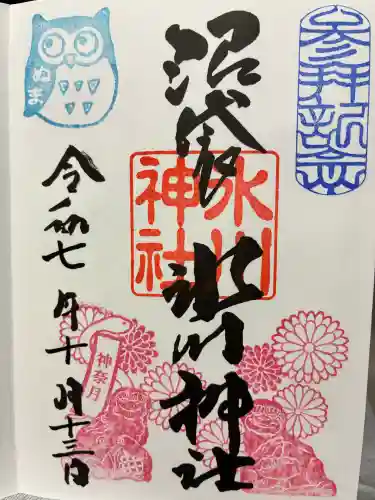 参拝記念
沼袋
氷川神社
氷川
神社
ぬま
令和七年十月十三日
神奈月